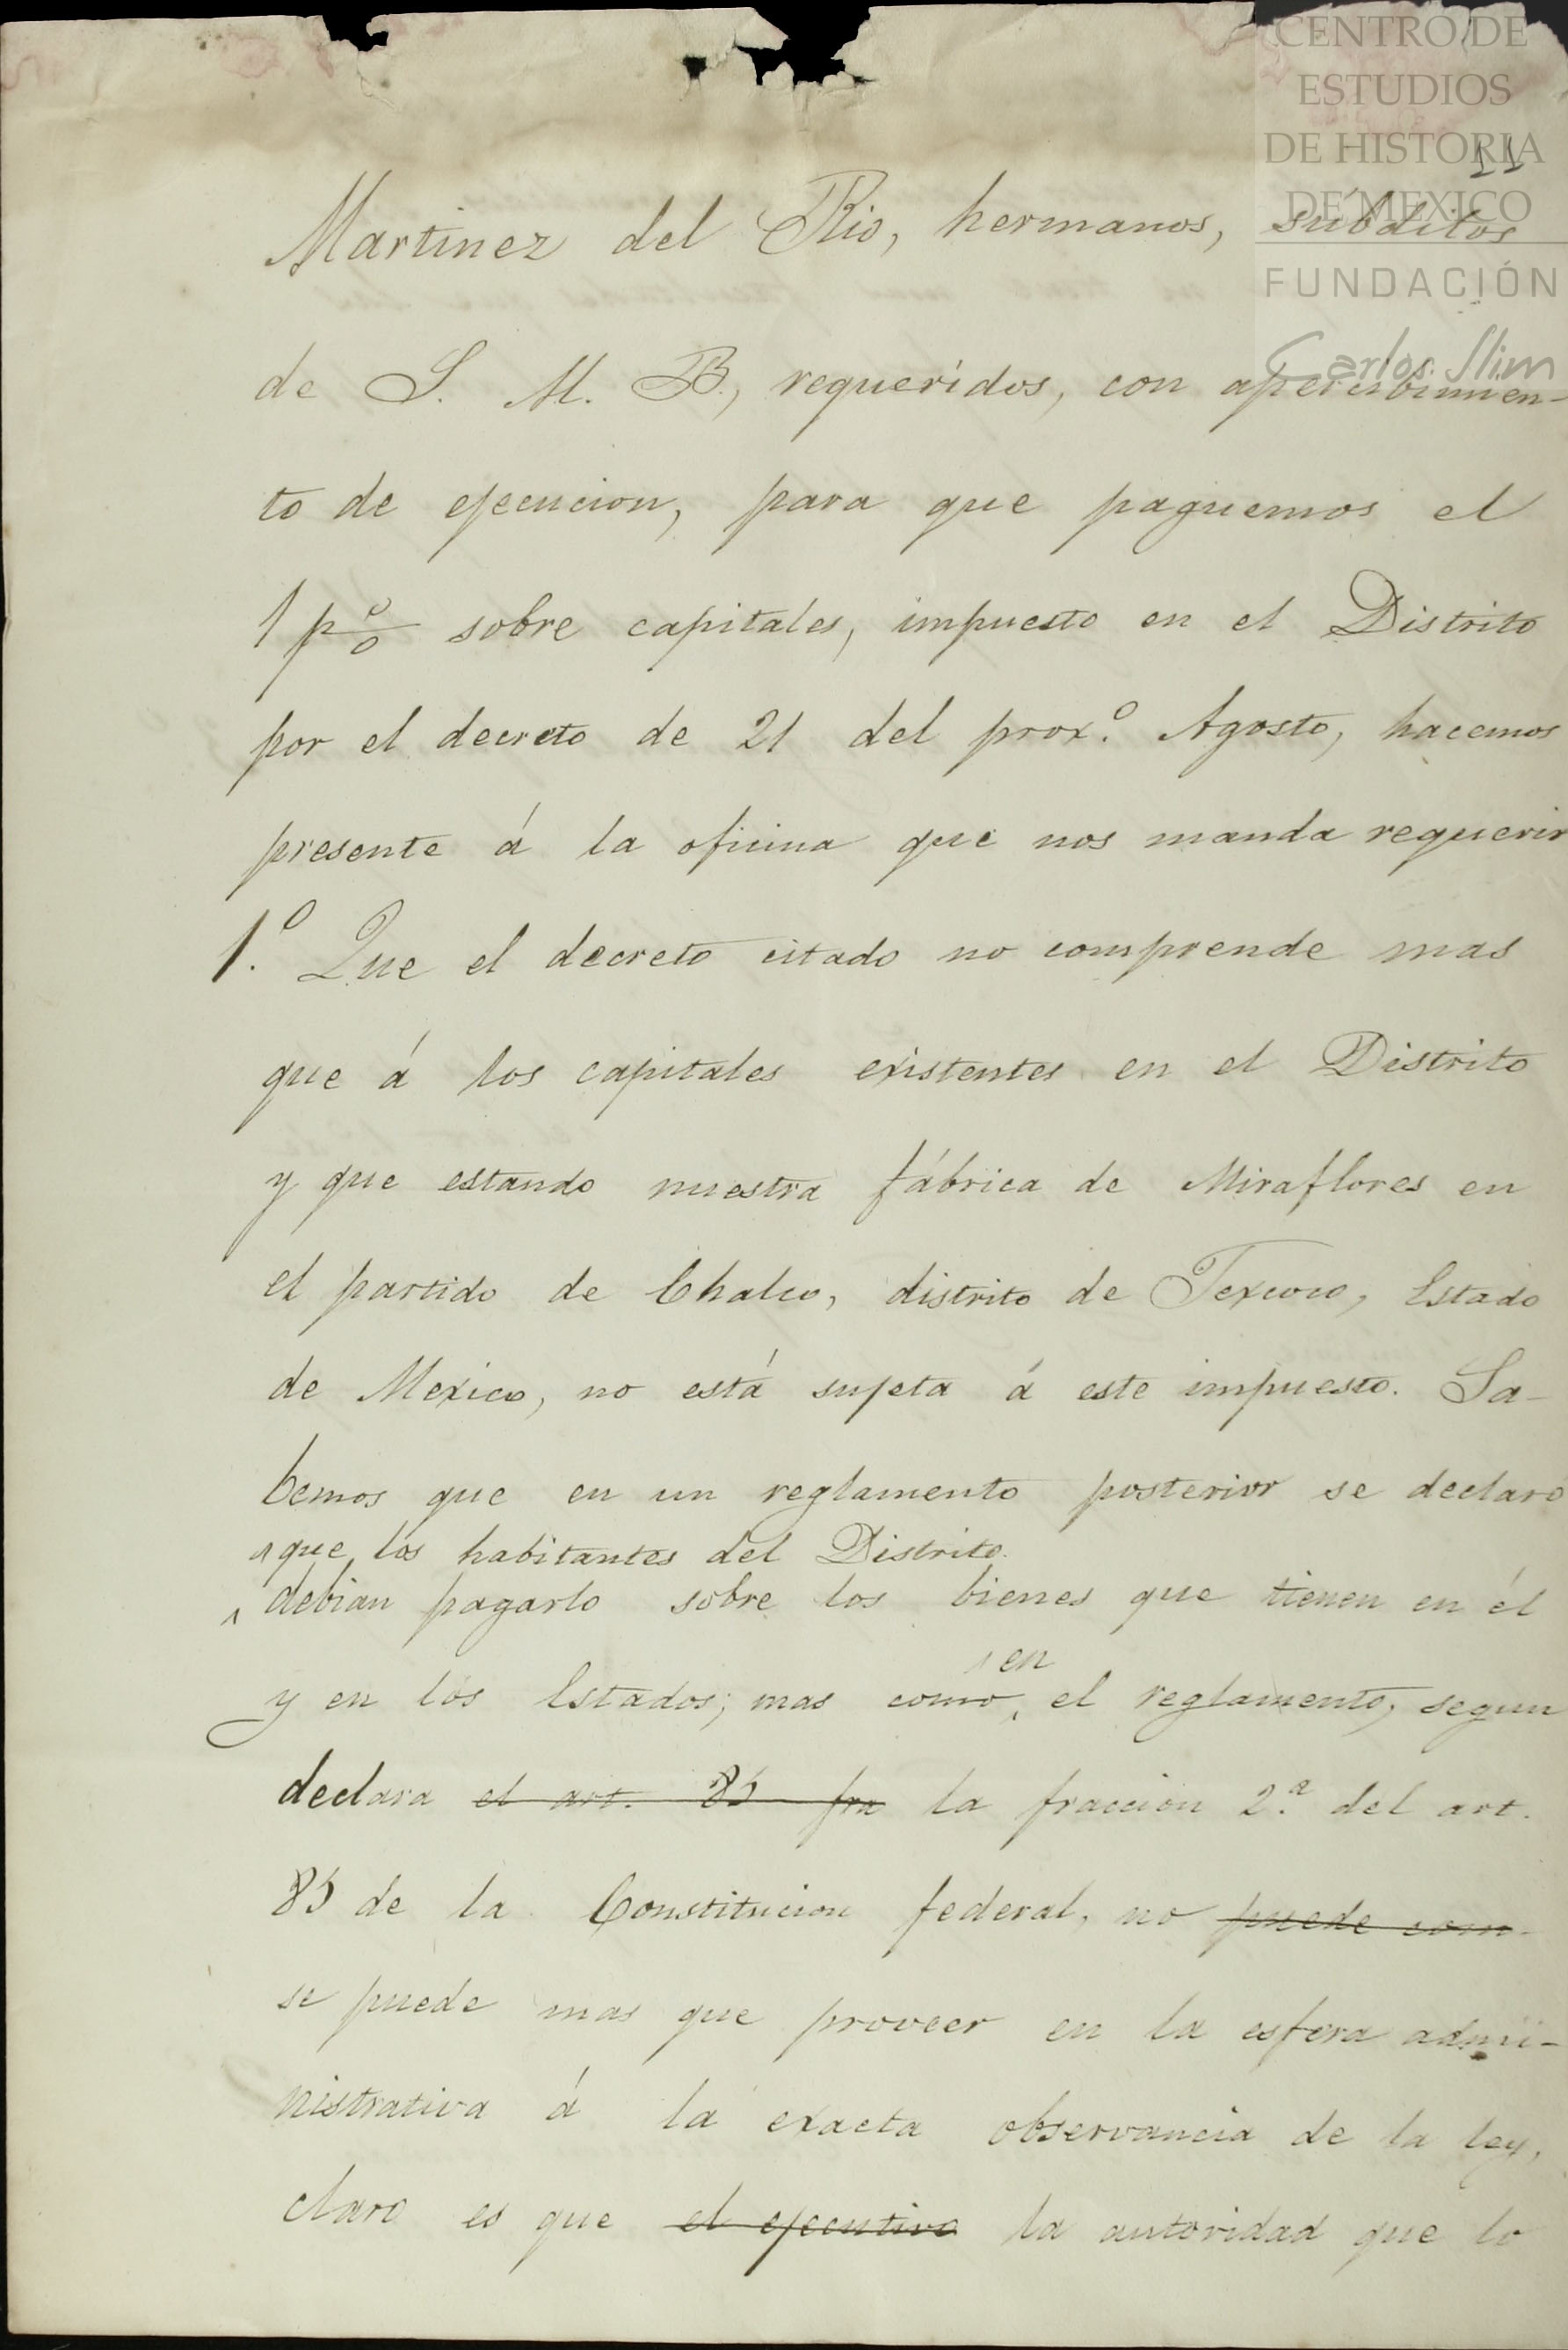 CENTRO DE
ESTUDIOS
DE HISTORIA
DE MEXICO
FUNDACIÓN
Carlos Slim
11
Martinez del Rio, hermanos, subditos
de S. M. B., requeridos, con apercibimien-
to de ejecucion, para que paguemos el
1 p% sobre capitales, impuesto en el Distrito
por el decreto de 21 del prox.º Agosto, hacemos
presente á la oficina que nos manda requerir
1.º Que el decreto citado no comprende mas
que á los capitales existentes en el Distrito
y que estando nuestra fábrica de Miraflores en
el partido de Chalco, distrito de Texcoco, Estado
de Mexico, no está sujeta á este impuesto. Sa-
bemos que en un reglamento posterior se declaro
que los habitantes del Distrito
debian pagarlo sobre los bienes que tienen en él
y en los Estados; mas como en el reglamento, segun
declara el art. 85 fra la fraccion 2.ª del art.
85 de la Constitucion federal, no puede com-
se puede mas que proveer en la esfera admi-
nistrativa á la exacta observancia de la ley,
claro es que el ejecutivo la autoridad que lo